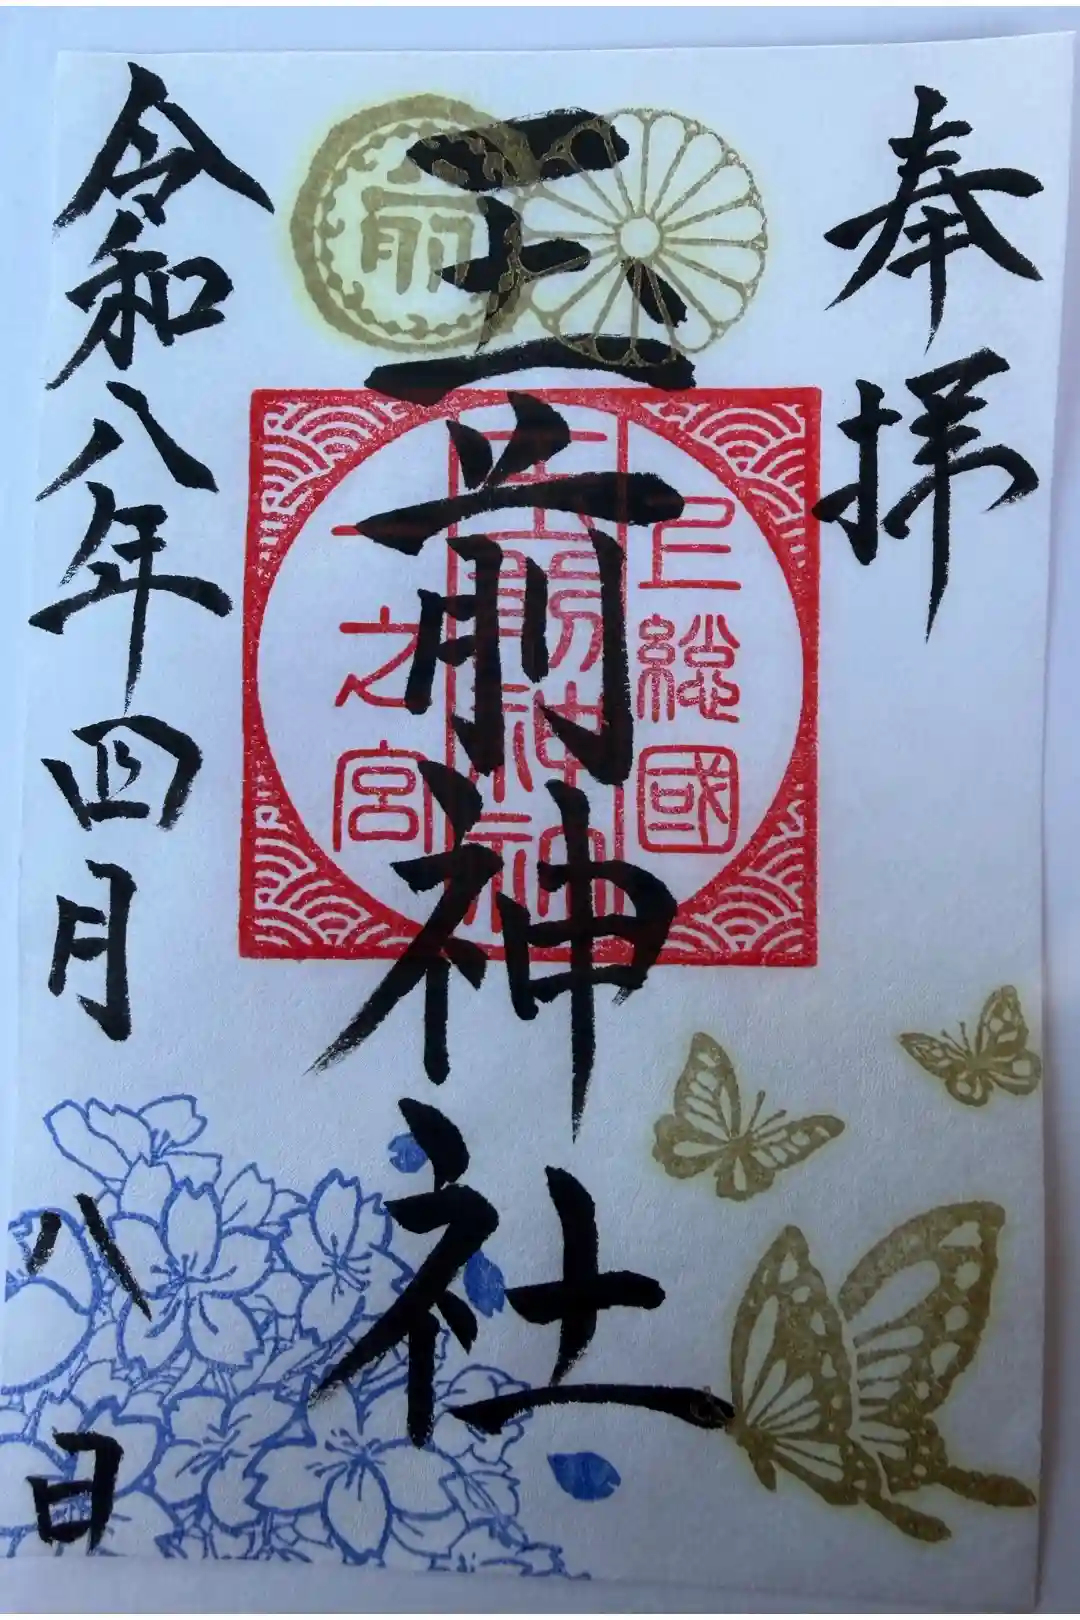 奉拝
玉前神社
令和八年四月八日
前
上総國
一之宮